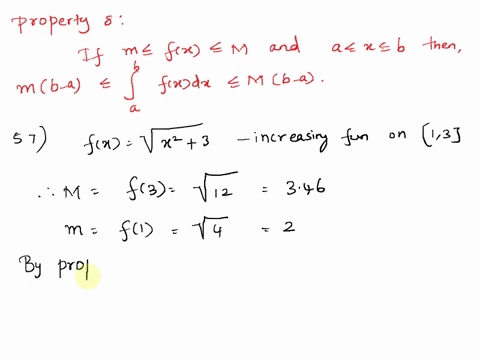 property 8:
If m ≤ f(x) ≤ M and a ≤ x ≤ b then,
m(b-a) ≤ ∫_a^b f(x)dx ≤ M(b-a).
57) f(x) = √(x²+3) - increasing fun on [1,3]
∴ M = f(3) = √12 = 3.46
m = f(1) = √4 = 2
By prop